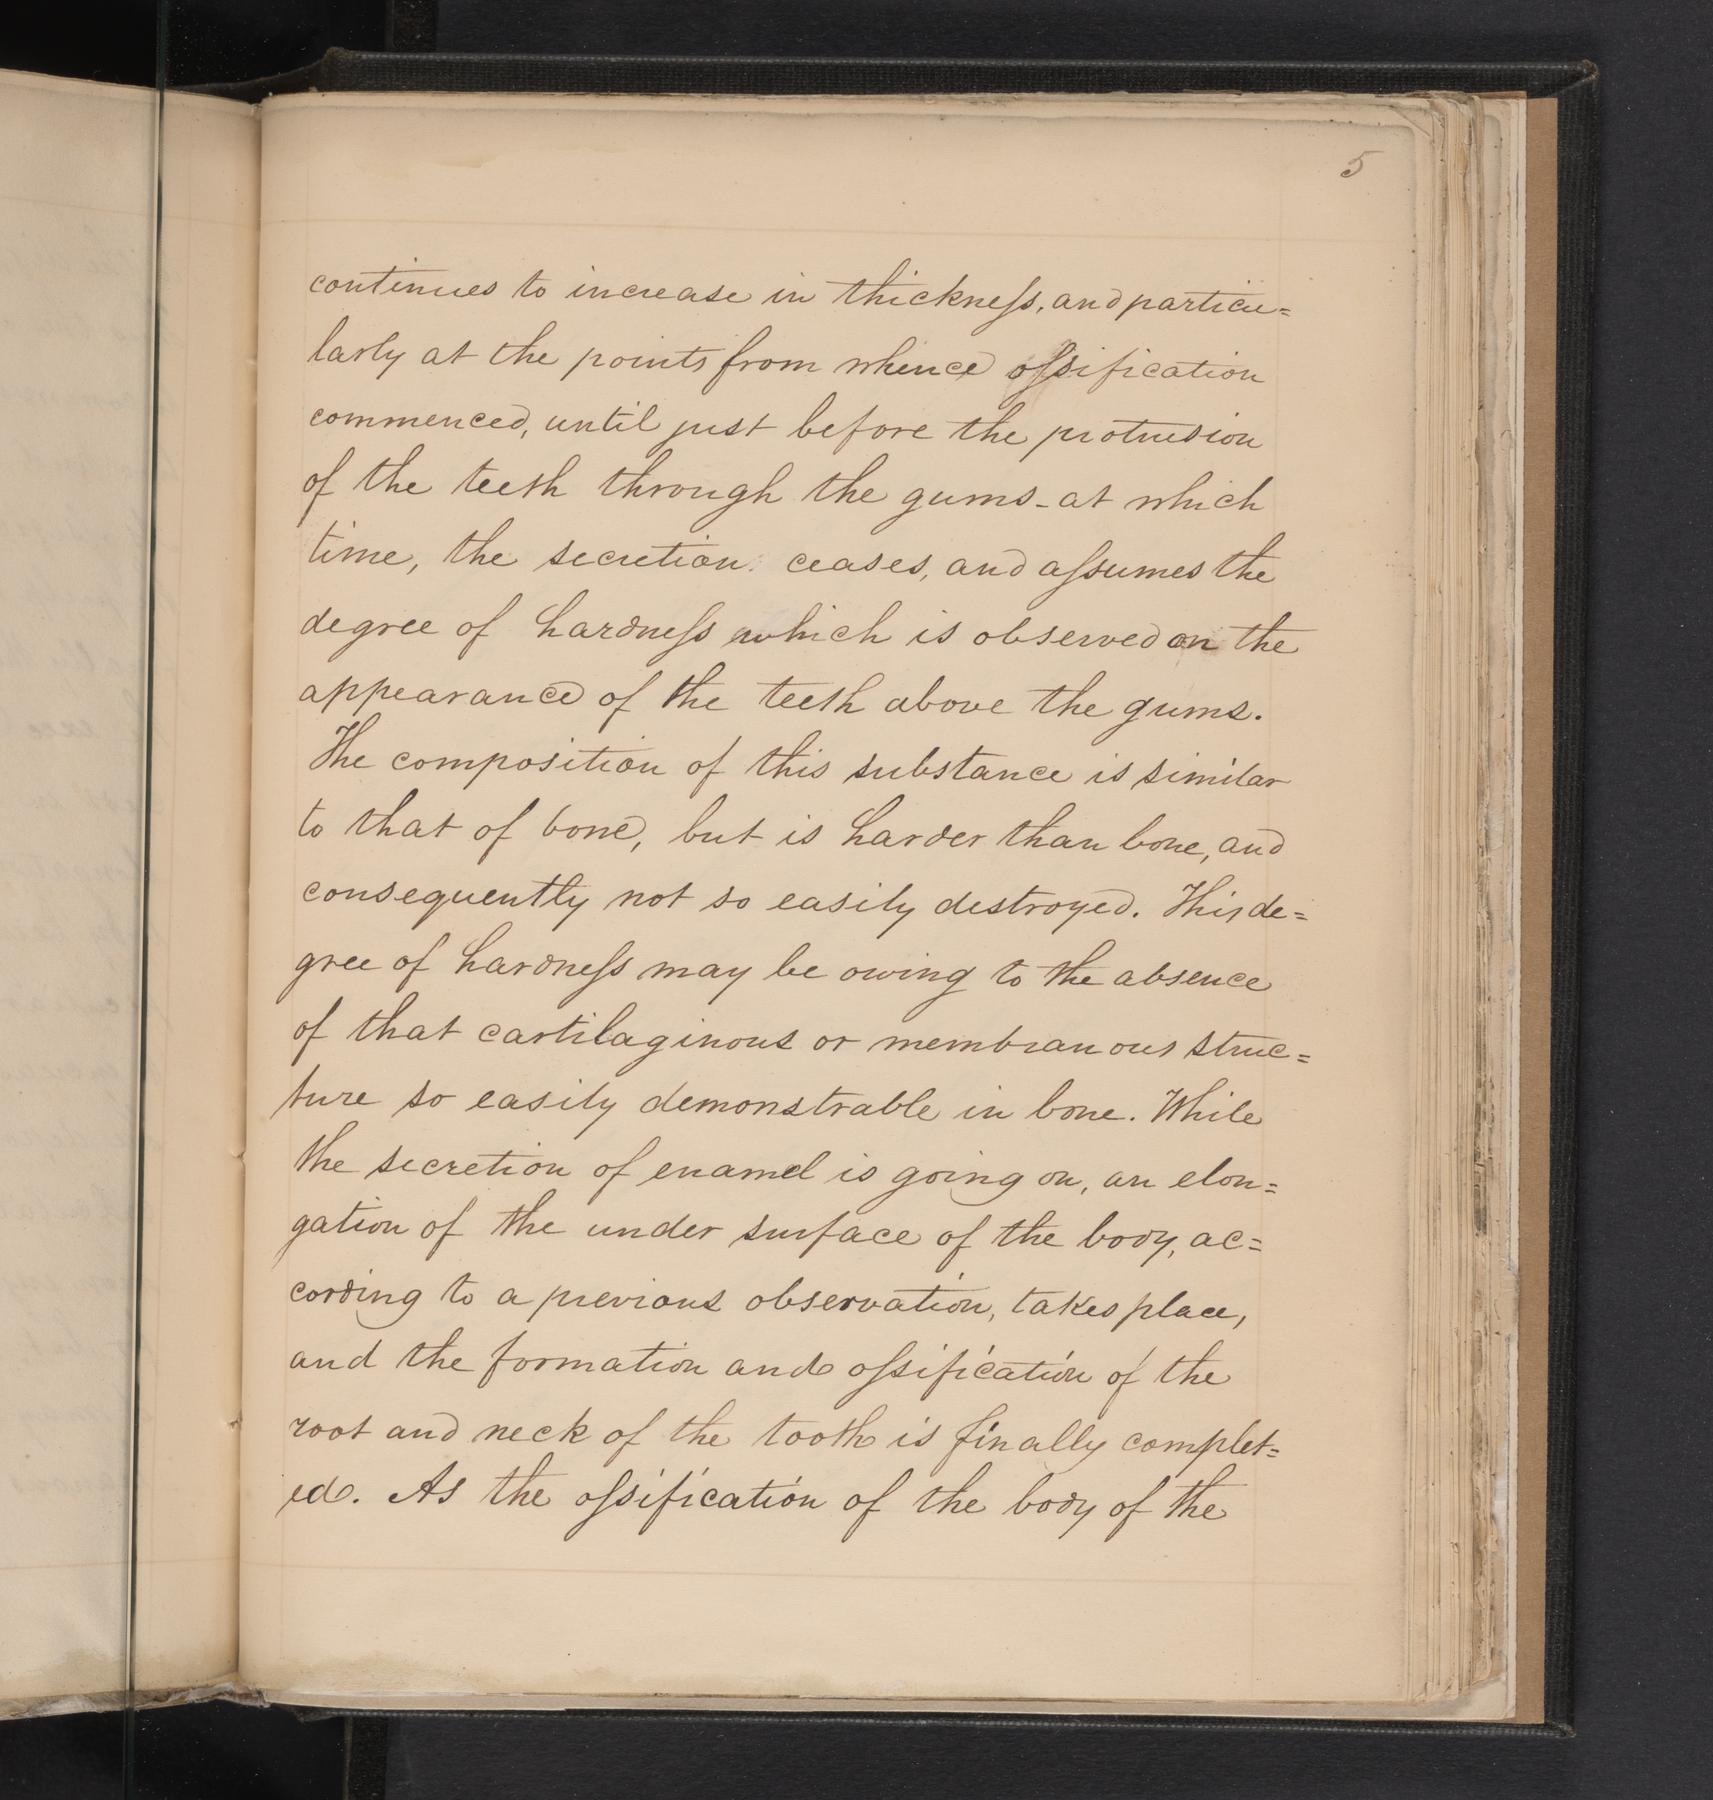 5
continues to increase in thickneſs, and particu=
larly at the points from whence oſsification
commenced, until just before the protrusion
of the teeth through the gums - at which
time, the secretion ceases, and aſsumes the
degree of hardneſs which is observed on the
appearance of the teeth above the gums.
The composition of this substance is similar
to that of bone, but is harder than bone, and
consequently not so easily destroyed. This de=
gree of hardneſs may be owing to the absence
of that cartilaginous or membranous struc=
ture so easily demonstrable in bone. While
the secretion of enamel is going on, an elon=
gation of the under surface of the body, ac=
cording to a previous observation, takes place,
and the formation and oſsification of the
root and neck of the tooth is finally complet=
ed. As the oſsification of the body of the